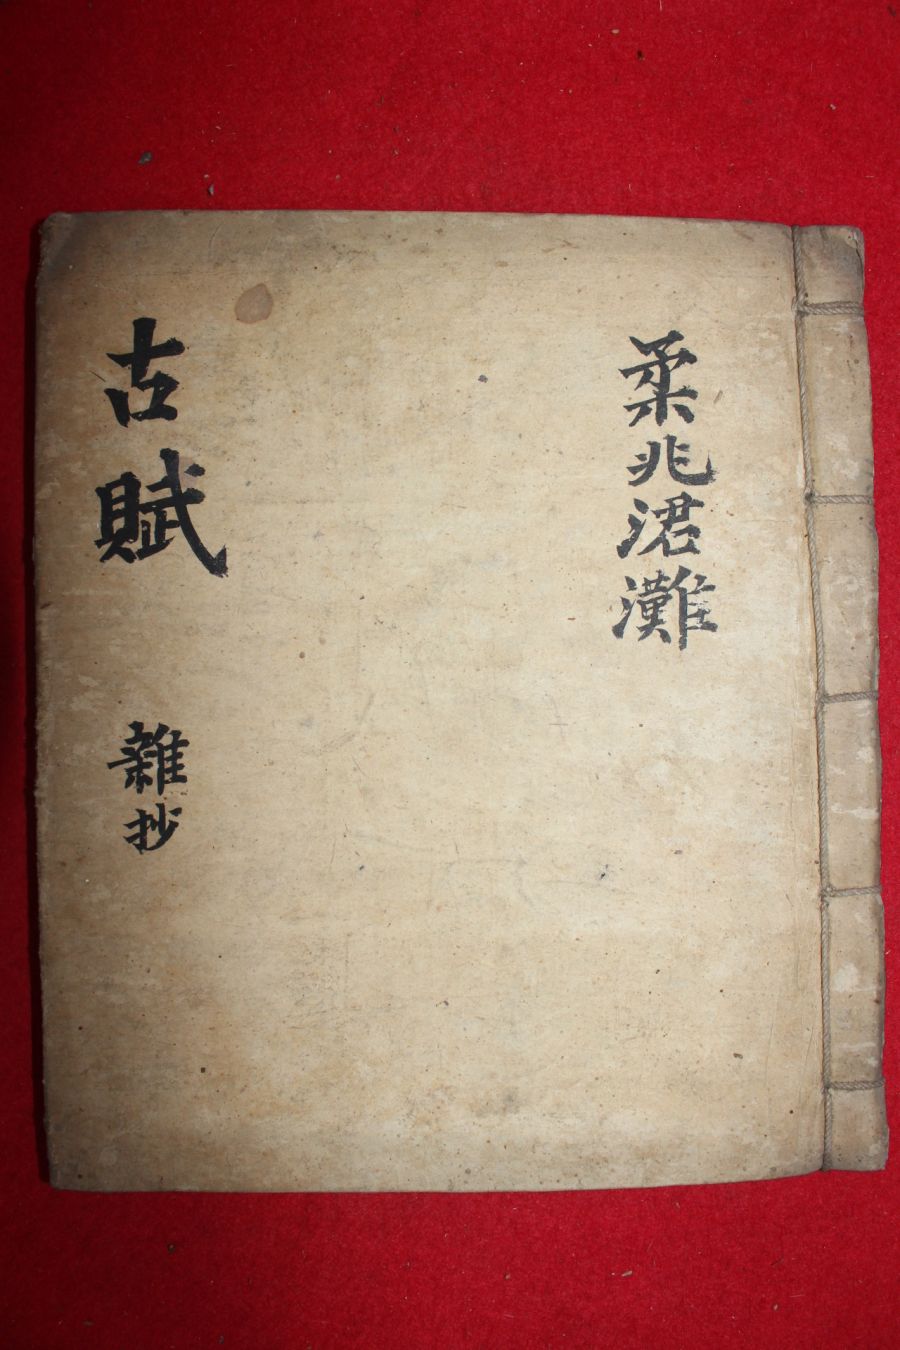 柔兆涒灘
古賦
雜抄